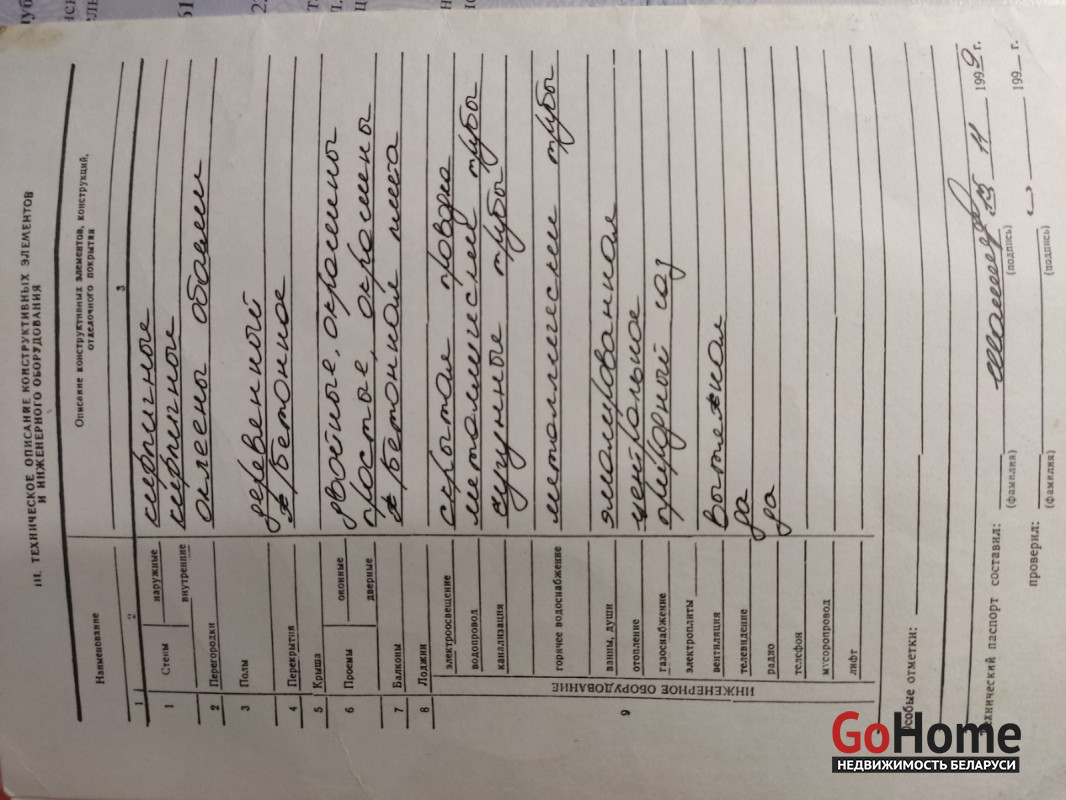 III. ТЕХНИЧЕСКОЕ ОПИСАНИЕ КОНСТРУКТИВНЫХ ЭЛЕМЕНТОВ
И ИНЖЕНЕРНОГО ОБОРУДОВАНИЯ
Наименование
Описание конструктивных элементов, конструкций,
отделочного покрытия
1 2 3
1 Стены наружные кирпичные
внутренние кирпичные
2 Перегородки оклеены обоями
3 Полы деревянный
4 Перекрытия ж/бетонное
5 Крыша
6 Проемы оконные двойные, окрашены
дверные простые, окрашены
7 Балконы ж/бетонная плита
8 Лоджии
9 ИНЖЕНЕРНОЕ ОБОРУДОВАНИЕ
электроосвещение скрытая проводка
водопровод металлические трубы
канализация чугунные трубы
горячее водоснабжение металлические трубы
ванны, души эмалированная
отопление центральное
газоснабжение природный газ
электроплиты
вентиляция вытяжная
телевидение да
радио да
телефон
мусоропровод
лифт
собые отметки:
ехнический паспорт составил: 11 1999 г.
(фамилия) (подпись)
проверил: 199 г.
(фамилия) (подпись)
GoHome
НЕДВИЖИМОСТЬ БЕЛАРУСИ